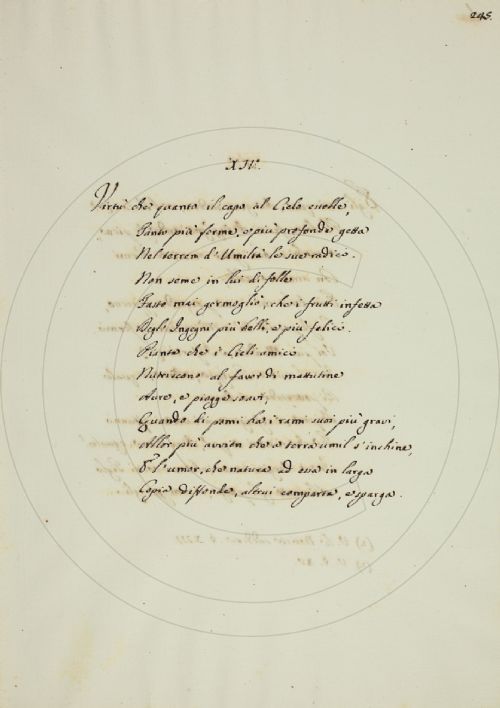 245.
XIV.
Virtù che quanto il capo al Cielo estolle,
Tanto più ferme, e più profonde getta
Nel terren d'Umiltà le sue radici.
Non seme in lui di folle
Fasto mai germogliò, che i frutti infetta
Degl'Ingegni più belli, e più felici.
Pianta che i Cieli amici
Nutriscono al favor di mattutine
Aure, e piogge soavi,
Quando di pomi ha i rami suoi più gravi,
Allor più avvien che a terra umil s'inchine,
E l'umor, che natura ad essa in larga
Copia diffonde, altrui comparta, e sparga.